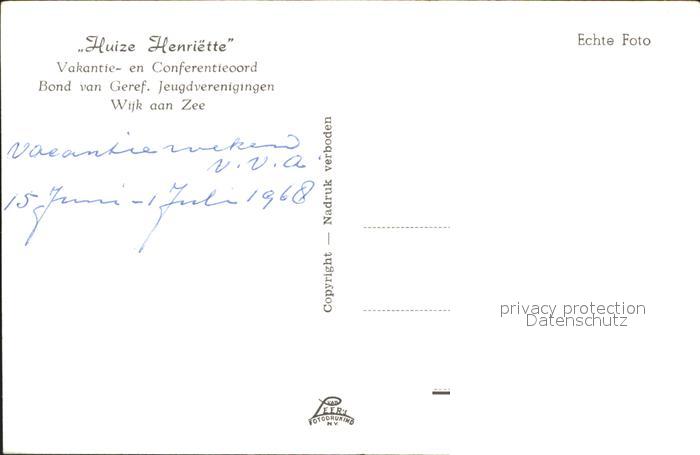 „Huize Henriëtte”
Vakantie- en Conferentieoord
Bond van Geref. Jeugdverenigingen
Wijk aan Zee
Echte Foto
Vacantie weken
V.V.A.
15 Juni - 1 Juli 1968
Copyright — Nadruk verboden
privacy protection
Datenschutz
VAN
LEER'S
FOTODRUKIND
N.V.